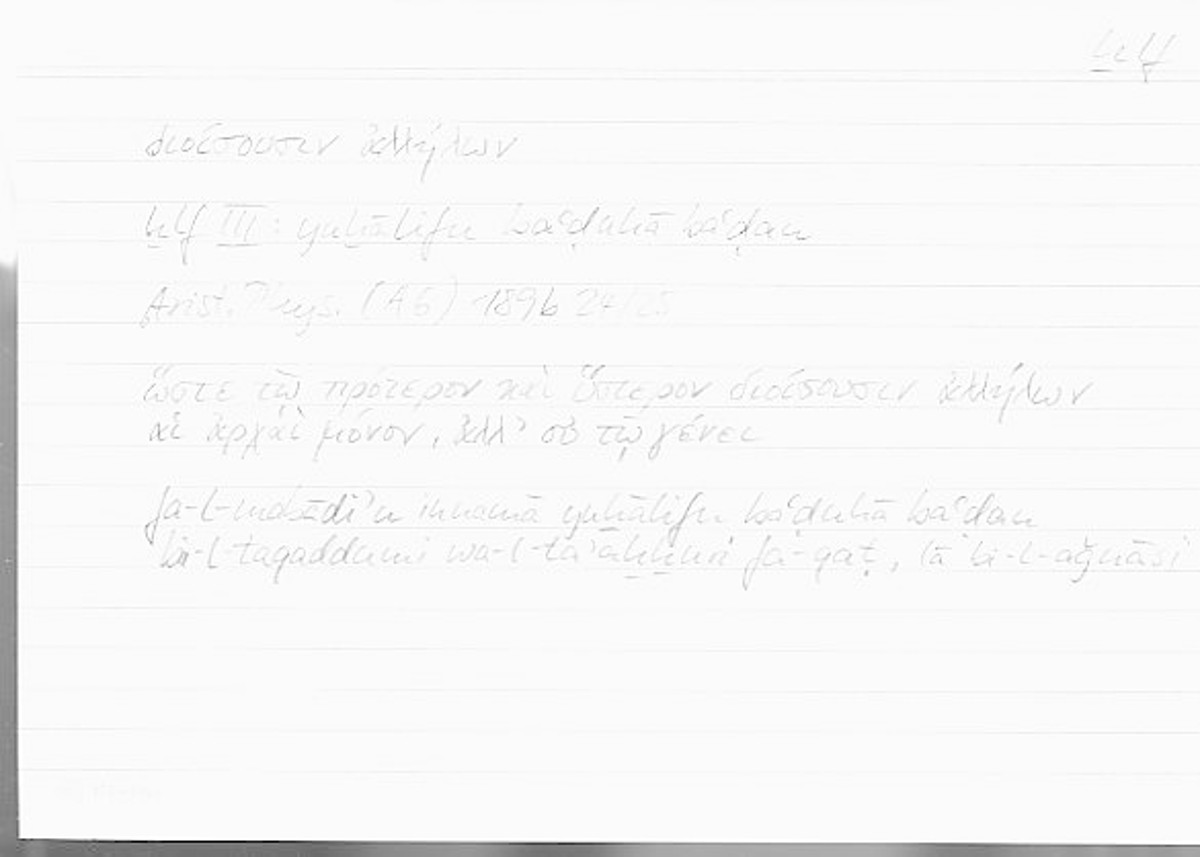 ḫlf
διοίσουσιν ἀλλήλων
ḫlf III: yuḫālifu baʿḍuhā baʿḍan
Arist. Phys. (A 6) 189b 24/25
ὥστε τῷ πρότερον καὶ ὕστερον διοίσουσιν ἀλλήλων
αἱ ἀρχαὶ μόνον, ἀλλ’ οὐ τῷ γένει
fa-l-mabādiʾu innamā yuḫālifu baʿḍuhā baʿḍan
bi-l-taqaddumi wa-l-taʾaḫḫuri fa-qaṭ, lā bi-l-aǧnāsi